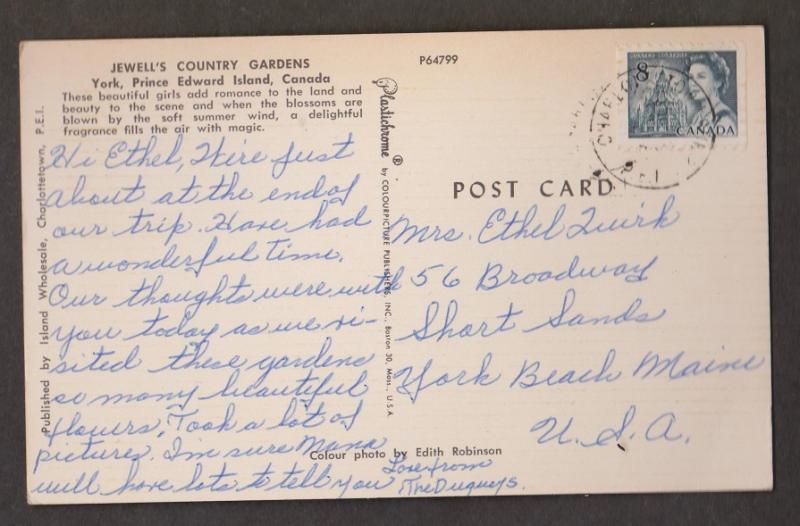 JEWELL'S COUNTRY GARDENS
York, Prince Edward Island, Canada
These beautiful girls add romance to the land and
beauty to the scene and when the blossoms are
blown by the soft summer wind, a delightful
fragrance fills the air with magic.
P64799
8
CANADA
Published by Island Wholesale, Charlottetown, P.E.I.
Plastichrome ® by COLOURPICTURE PUBLISHERS, INC., Boston 30, Mass., U.S.A.
POST CARD
Hi Ethel, We're just
about at the end of
our trip. Have had
a wonderful time.
Our thoughts were with
you today as we vi-
sited these gardens
so many beautiful
flowers. Took a lot of
pictures. I'm sure Nana
will have lots to tell you
Love from
The Dugueys.
Mrs. Ethel Quirk
56 Broadway
Short Sands
York Beach Maine
U.S.A.
Colour photo by Edith Robinson